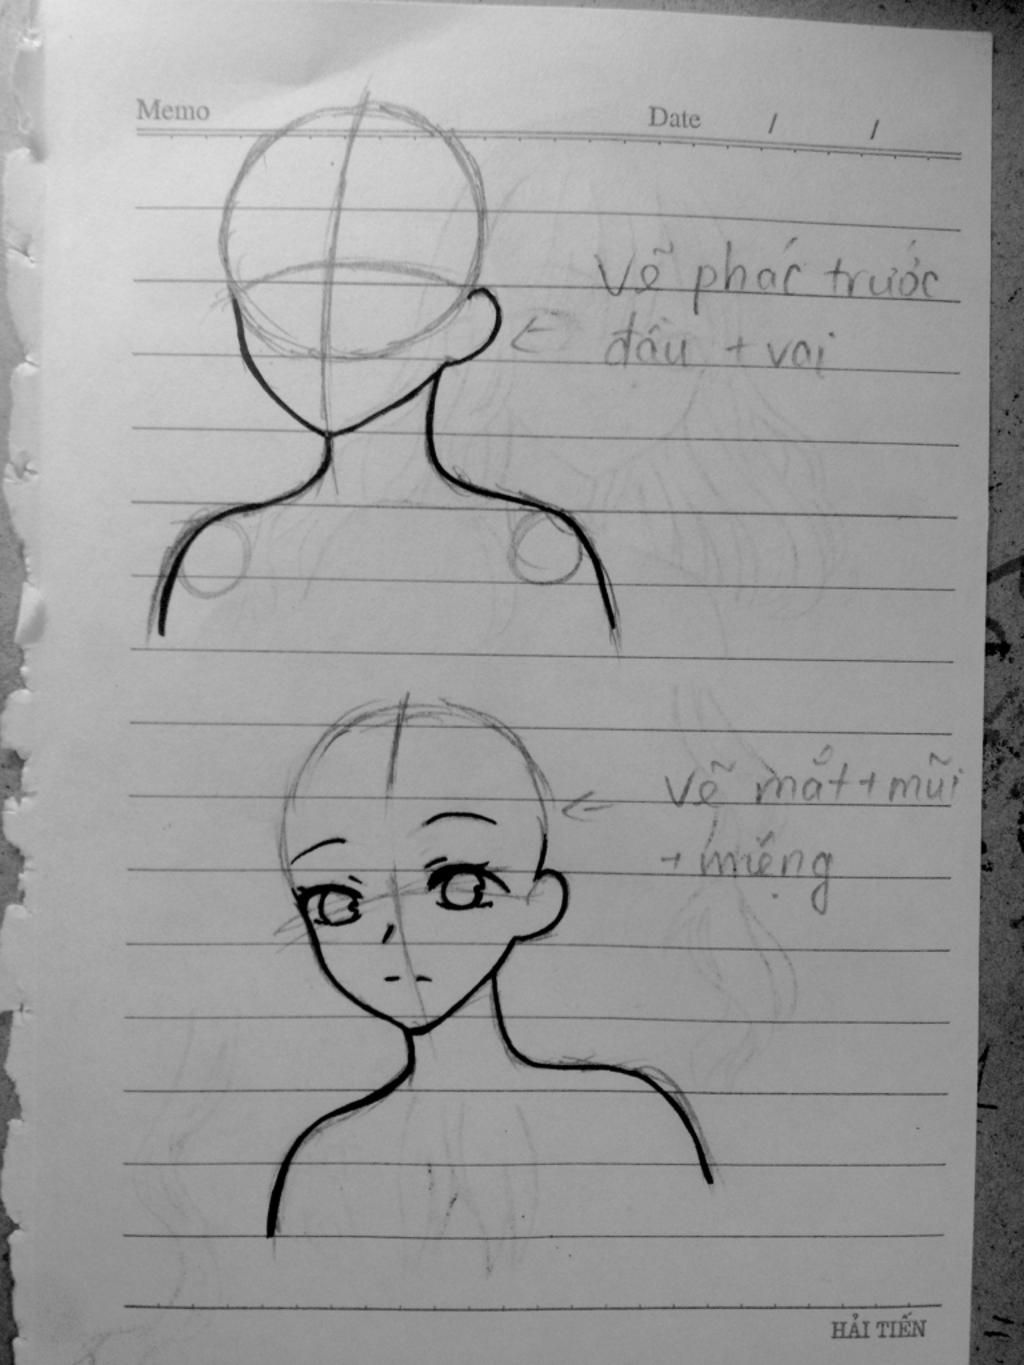 Memo Date / /
Vẽ phác trước
đầu + vai
Vẽ mắt + mũi
+ miệng
HẢI TIẾN